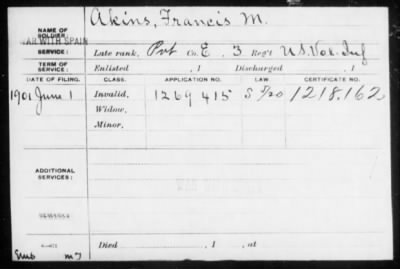 Akins, Francis M.
NAME OF SOLDIER:
WAR WITH SPAIN
SERVICE: Late rank, Pvt Co. E, 3 Reg't U.S. Vol. Inf
TERM OF SERVICE: Enlisted , 1 Discharged , 1
DATE OF FILING. CLASS. APPLICATION NO. LAW. CERTIFICATE NO.
1901 June 1 Invalid, 1269 415 1218.162
Widow,
Minor,
ADDITIONAL SERVICES:
WAR WITH
REMARKS:
Died , 1 , at